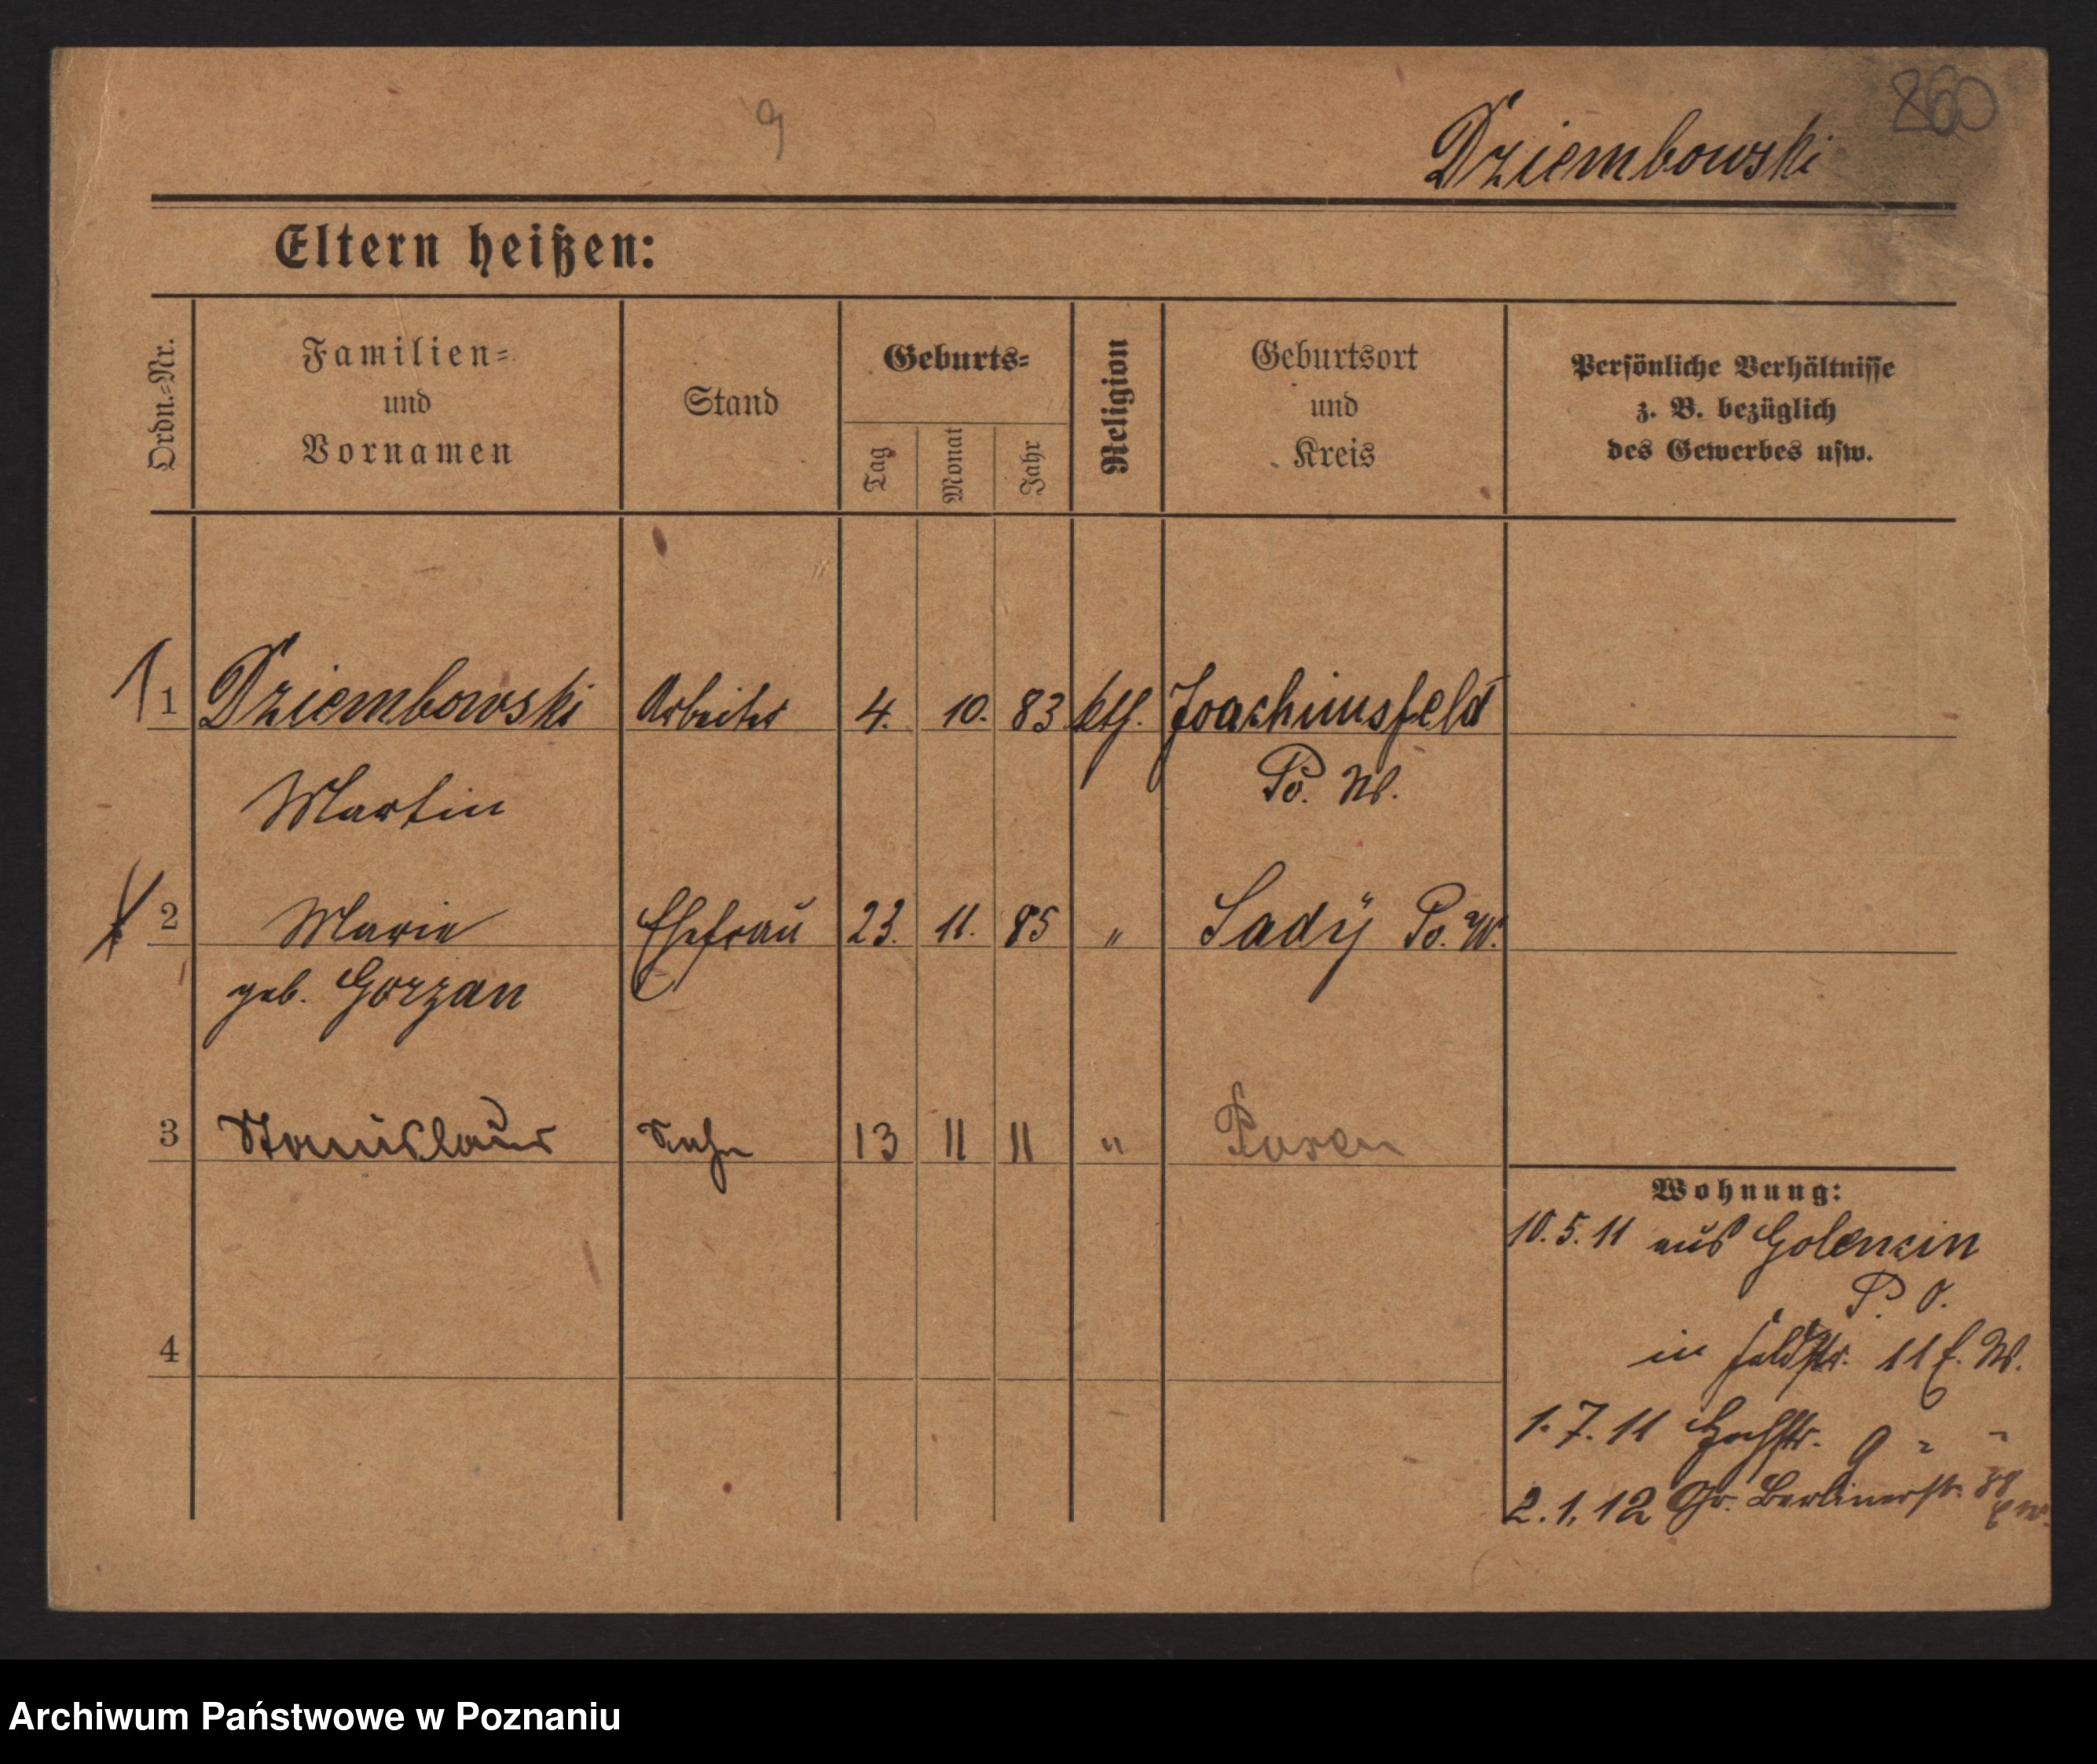 9
860
Dziembowski
Eltern heißen:
Ordn.-Nr.
Familien-
und
Vornamen
Stand
Geburts-
Tag
Monat
Jahr
Religion
Geburtsort
und
Kreis
Persönliche Verhältnisse
z. B. bezüglich
des Gewerbes usw.
1 Dziembowski Arbeiter 4. 10. 83 kth. Joachimsfeld
Martin Po. W.
2 Marie Ehefrau 23. 11. 85 " Sady Po. W.
geb. Gorzan
3 Stanislaus Sohn 13 11 11 " Posen
4
Wohnung:
10.5.11 aus Golencin
P. O.
in Feldstr. 11 E. W.
1.7.11 Hochstr. 9 " "
2.1.12 Gr. Berlinerstr. 88
E W.
Archiwum Państwowe w Poznaniu